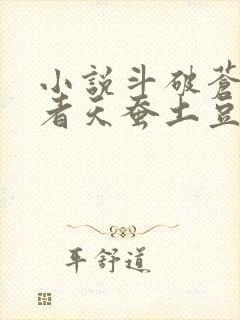 小說斗破蒼
者天蚕土豆
耳舒道